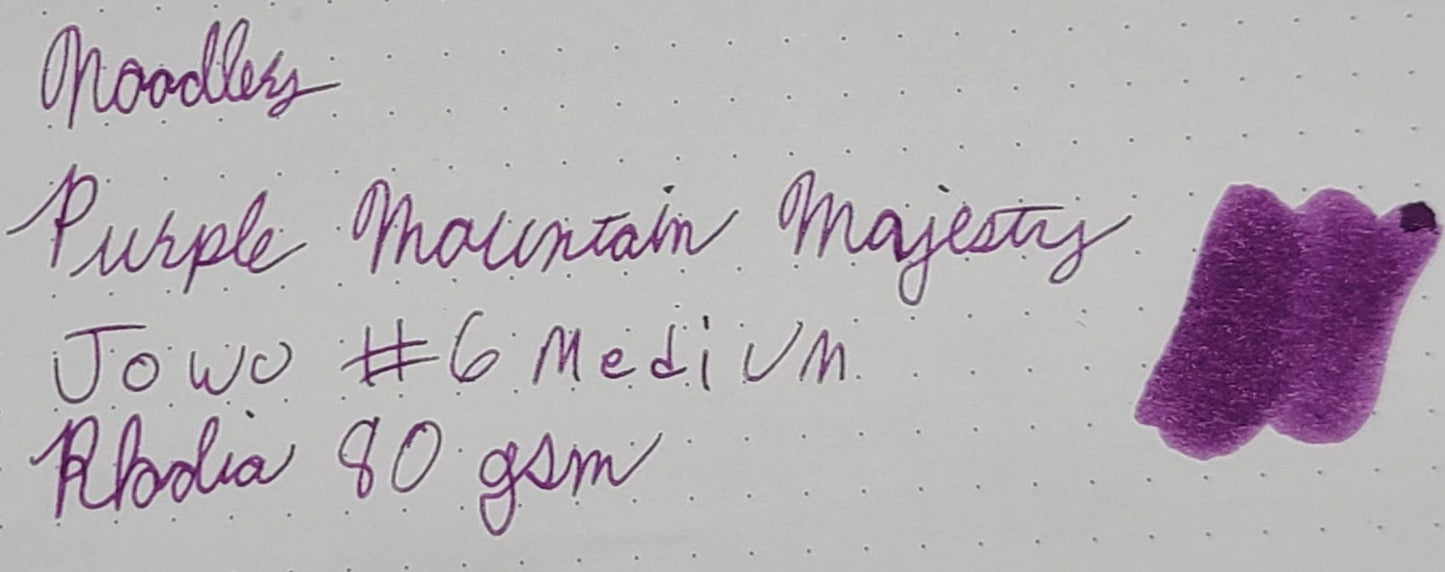 Noodlers
Purple Mountain Majesty
Jowo #6 Medium
Rhodia 80 gsm